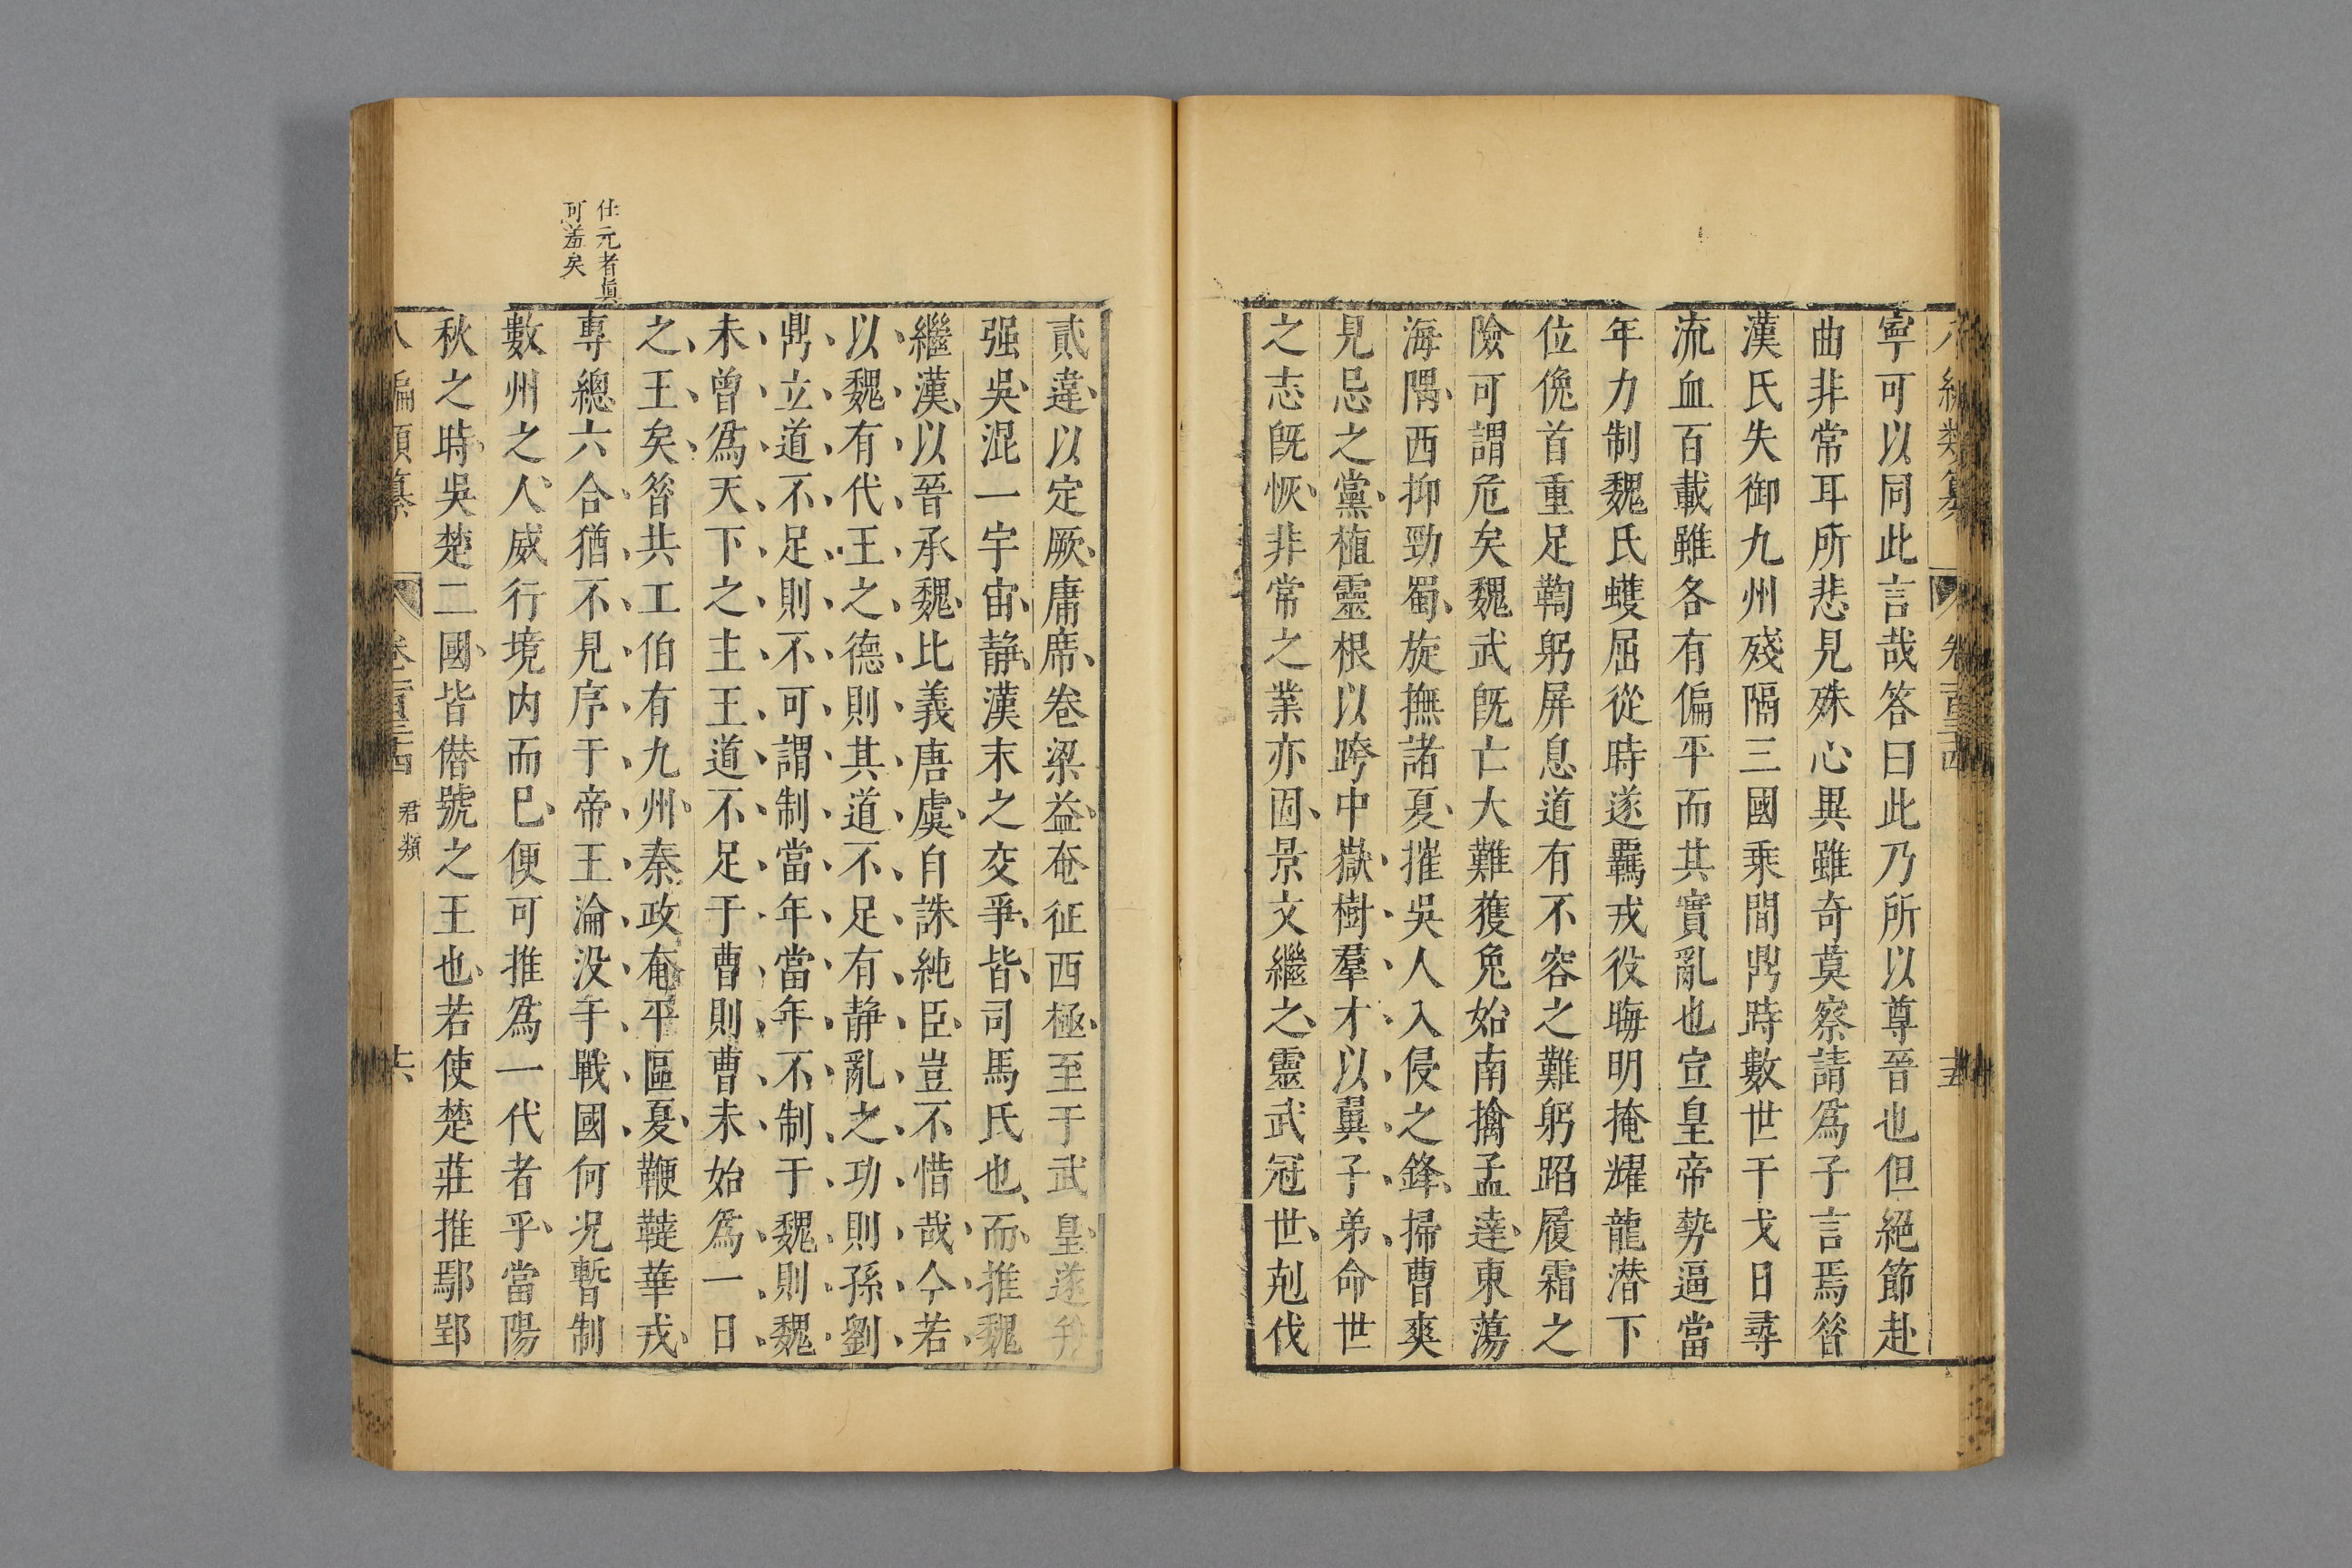 寧可以同此言哉答曰此乃所以尊晉也但絕節赴
曲非常耳所悲見殊心異雖奇莫察請爲子言焉昝
漢氏失御九州殘隔三國乘間鼎跱數世干戈日尋
流血百載雖各有偏平而其實亂也宣皇帝勢逼當
年力制魏氏蠖屈從時遂羈戎役晦明掩耀龍潜下
位俛首重足鞫躬屏息道有不容之難躬蹈履霜之
險可謂危矣魏武旣亡大難獲免始南擒孟達東蕩
海隅西抑勁蜀旋撫諸夏摧吳人入侵之鋒掃曹爽
見忌之黨植靈根以跨中嶽樹羣才以翼子弟命世
之志旣恢非常之業亦固景文繼之靈武冠世剋伐
貳違以定厥庸席卷梁益奄征西極至于武皇遂并
强吳混一宇宙靜漢末之交爭皆司馬氏也而推魏
繼漢以晉承魏比義唐虞自謀純臣豈不惜哉今若
以魏有代王之德則其道不足有靜亂之功則孫劉
鼎立道不足則不可謂制當年當年不制于魏則魏
未曾爲天下之主王道不足于曹則曹未始爲一日
之王矣昝共工伯有九州秦政奄平區夏鞭韃華戎
專總六合猶不見序于帝王淪没于戰國何况暫制
數州之人威行境内而已便可推爲一代者乎當陽
秋之時吳楚二國皆僣號之王也若使楚莊推鄢郢
仕元者真
可羞矣
八編類纂 卷一百三十四 君類